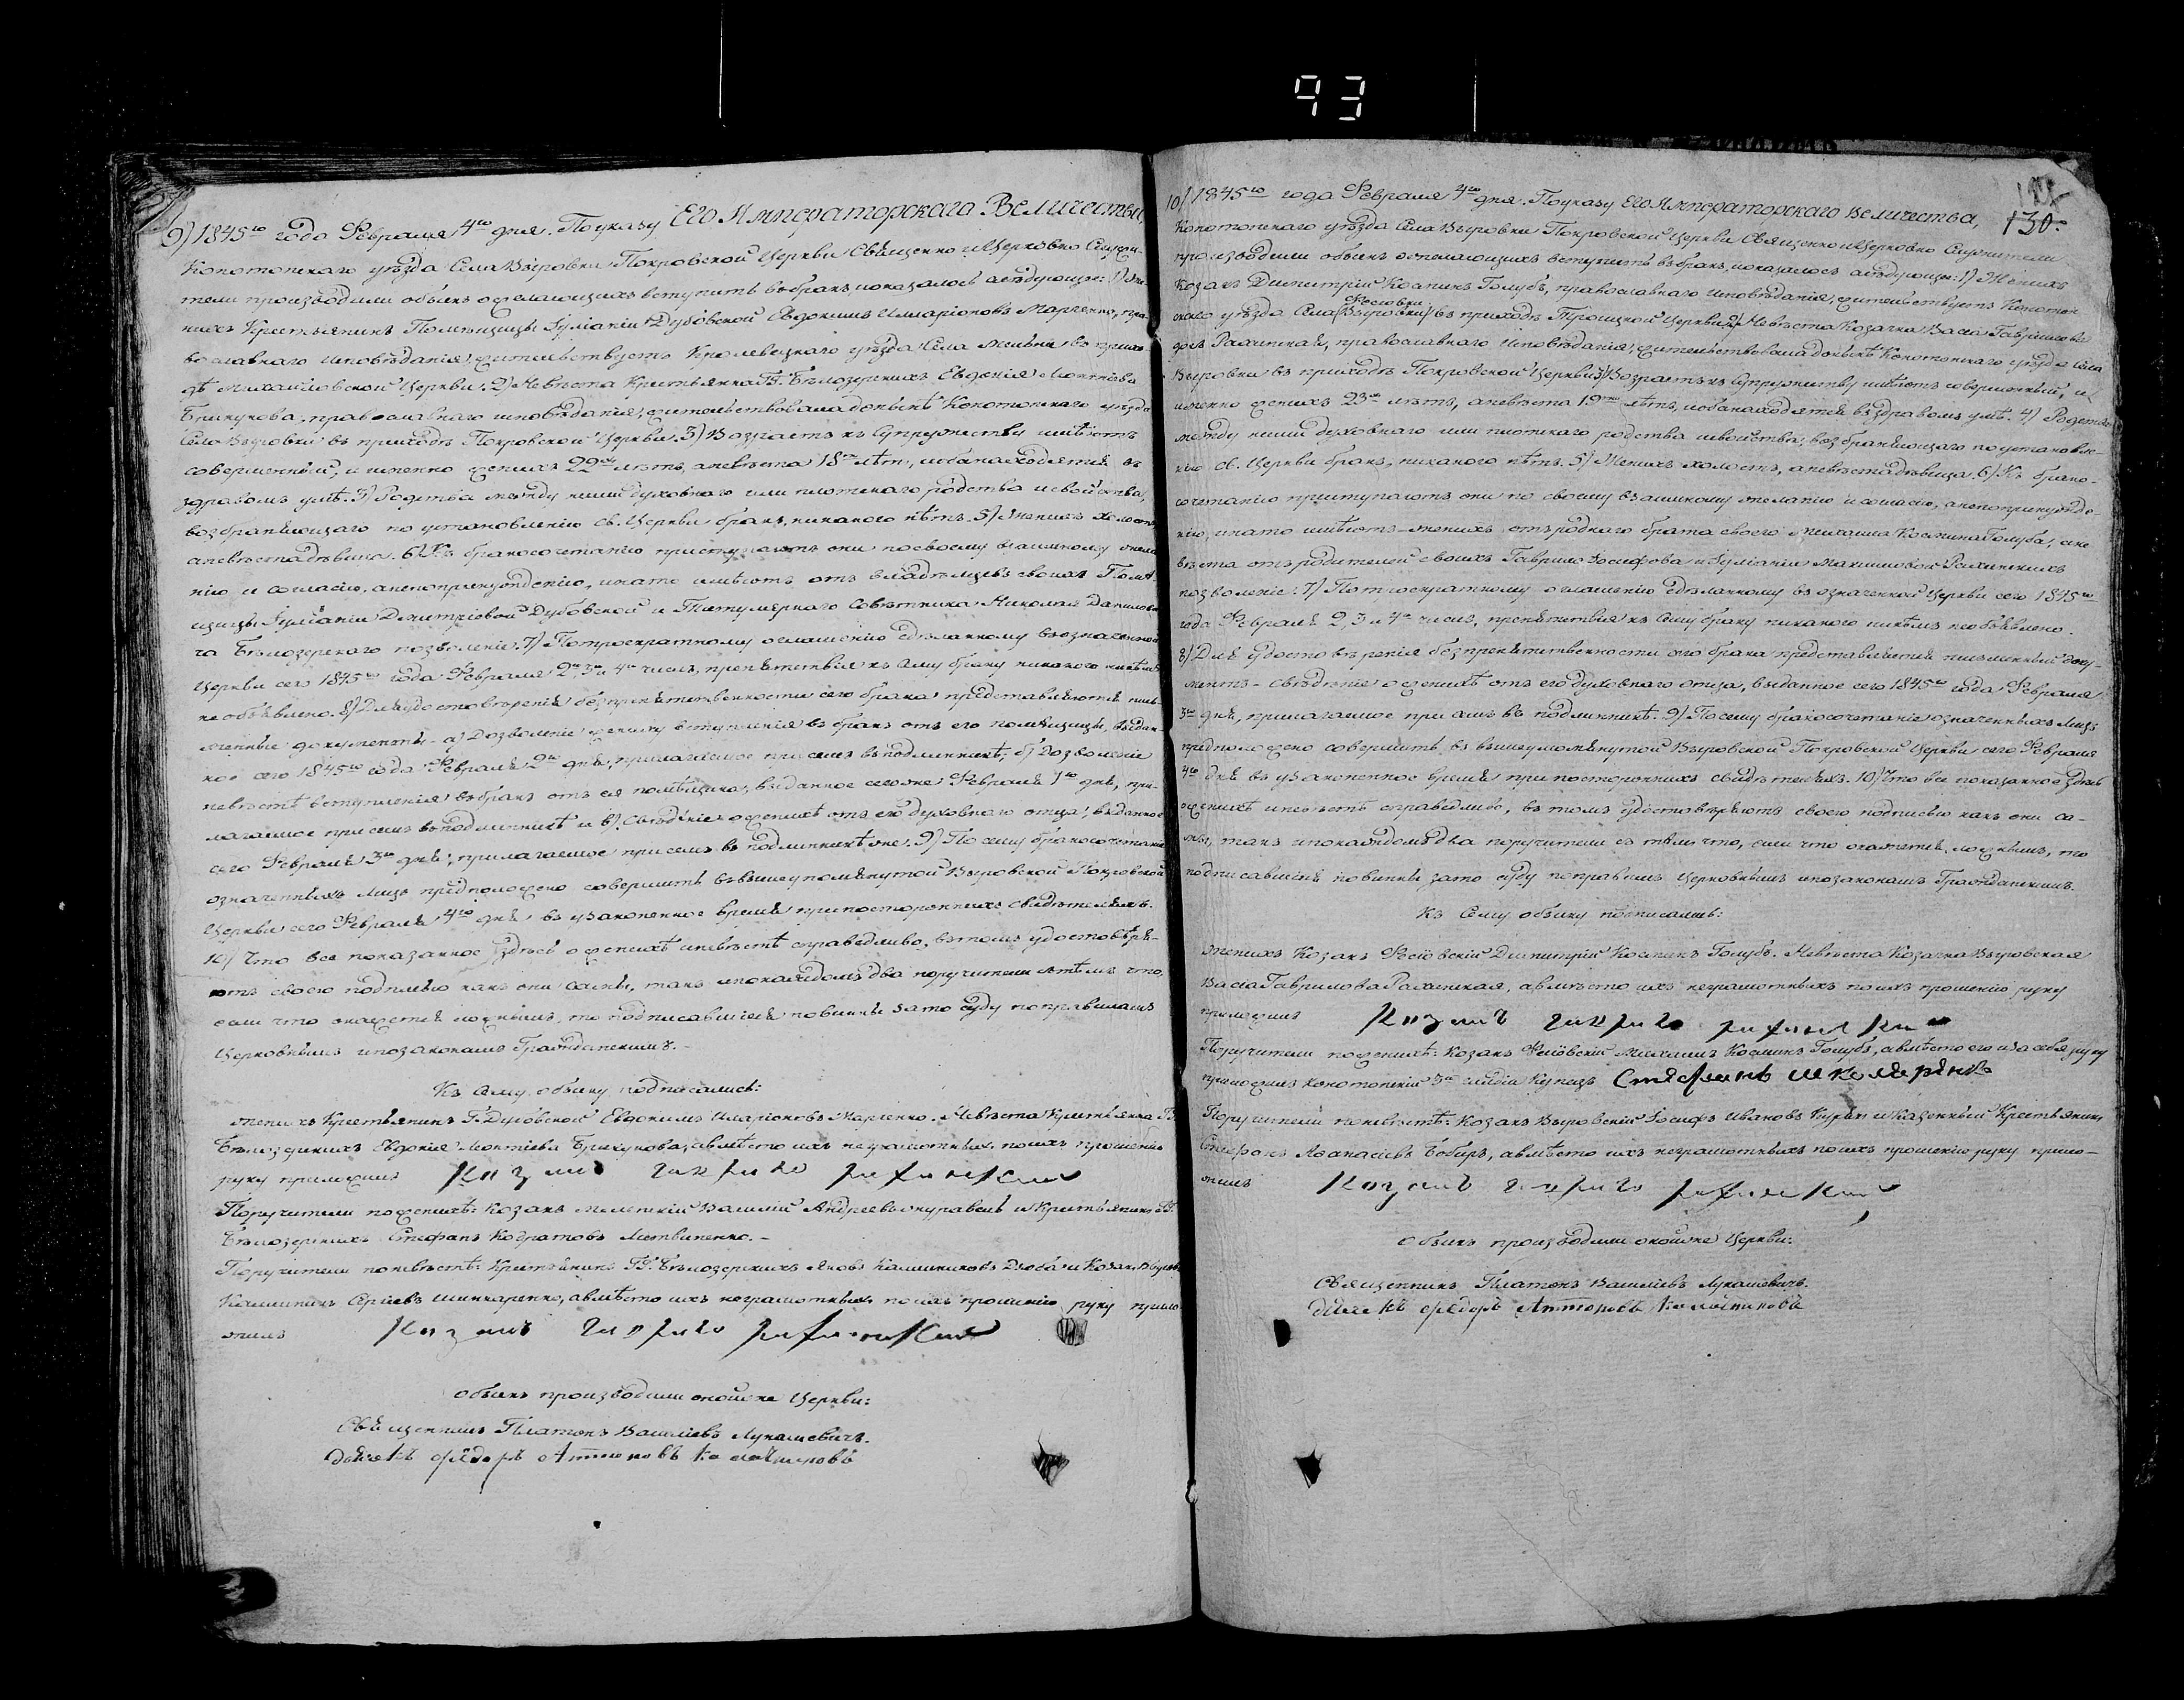 93
9) 1845го года Февраля 4го дня. По указу Его Императорскаго Величества
Конотопскаго уѣзда Села Выровки Покровской Церкви Священно и Церковно Служи-
тели производили обыскъ о желающихъ вступить въ бракъ, и оказалось слѣдующее: 1) Же-
нихъ Крестьянинъ Помѣщицы Іуліаніи Дубовской Евдокимъ Илларіоновъ Марченко, пра-
вославнаго исповѣданія, жительствуетъ Кролевецкаго уѣзда Села въ прихо-
дѣ Михайловской Церкви. 2) Невѣста Крестьянка ГГ. Бѣлозерскихъ Евдокія Леонтіева
православнаго исповѣданія, жительствовала донынѣ Конотопскаго уѣзда
Села Выровки въ приходѣ Покровской Церкви. 3) Возрастъ къ Супружеству имѣютъ
совершенный, и именно женихъ 22хъ лѣтъ, а невѣста 18ти лѣтъ, и оба находятся въ
здравомъ умѣ. 3) Родства между ними духовнаго или плотскаго родства и свойства,
возбраняющаго по установленію св. Церкви бракъ, никакого нѣтъ. 5) Женихъ холостъ
а невѣста дѣвица. 6) Къ бракосочетанію приступаютъ они по своему взаимному жела-
нію и согласію, а не по принужденію, и на то имѣютъ отъ владѣльцевъ своихъ Помѣ-
щицы Іуліаніи Дмитріевой Дубовской и Титулярнаго Совѣтника Николая Данилови-
ча Бѣлозерскаго позволеніе. 7) По троекратному оглашенію сдѣланному въ означенной
Церкви сего 1845го года Февраля 2го, 3го и 4го числъ, препятствія къ сему браку никакого никѣмъ
не объявлено. 8) Для удостовѣренія безпрепятственности сего брака представляются пись-
менные документы - а) Дозволеніе жениху вступленія въ бракъ отъ его помѣщицы, выдан-
ное сего 1845го года Февраля 2го дня, прилагаемое при семъ въ подлинникѣ; б) Дозволеніе
невѣстѣ вступленія въ бракъ отъ ея помѣщика, выданное сего же Февраля 1го дня, при-
лагаемое при семъ въ подлинникѣ и в) Свѣдѣніе о женихѣ отъ его духовнаго отца, выданное
сего Февраля 3го дня, прилагаемое при семъ въ подлинникѣ же. 9) По сему бракосочетаніе
означенныхъ лицъ предположено совершить въ вышеупомянутой Выровской Покровской
Церкви сего Февраля 4го дня въ узаконенное время при постороннихъ свидѣтеляхъ.
10) Что все показанное здѣсь о женихѣ и невѣстѣ справедливо, въ томъ удостовѣря-
ютъ своею подписью какъ они сами, такъ и по каждомъ два поручителя съ тѣмъ что,
если что окажется ложнымъ, то подписавшіеся повинны за то суду по правиламъ
Церковнымъ и по законамъ Гражданскимъ.-
Къ Сему обыску подписались:
Женихъ Крестьянинъ Г. Дубовской Евдокимъ Иларіоновъ Марченко. Невѣста Крестьянка ГГ.
Бѣлозерскихъ Евдокія Леонтіева а вмѣсто ихъ неграмотныхъ по ихъ прошенію
руку приложилъ Козакъ Гаврило Рахинскій
Поручители по женихѣ: Козакъ Василій Андреевъ Журавель и Крестьянинъ ГГ.
Бѣлозерскихъ Стефанъ Кондратовъ Литвиненко.-
Поручители по невѣстѣ: Крестьянинъ ГГ. Бѣлозерскихъ Яковъ Калиниковъ Дзюба и Козакъ Выров.
Калиникъ Сергіевъ Шинкаренко, а вмѣсто ихъ неграмотныхъ по ихъ прошенію руку прило-
жилъ Козакъ Гаврило Рахинскій
Обыскъ производили оной же Церкви:
Священникъ Платонъ Василіевъ Лукашевичъ.
Дьячекъ Федоръ Антоновъ
130.
10) 1845го года Февраля 4го дня. По указу Его Императорскаго Величества,
Конотопскаго уѣзда Села Выровки Покровской Церкви Священно и Церковно Служители
производили обыскъ о желающихъ вступить въ бракъ, и оказалось слѣдующее: 1) Женихъ
Козакъ Димитрій Косминъ Голубъ, православнаго исповѣданія, жительствуетъ Конотоп-
скаго уѣзда Села (Выровки) въ приходѣ Троицкой Церкви. 2) Невѣста Козачка Васса Гаврилова
дочь Рахинская, православнаго исповѣданія, жительствовала донынѣ Конотопскаго уѣзда Села
Выровки въ приходѣ Покровской Церкви. 3) Возрастъ къ Супружеству имѣютъ совершенный, и
именно женихъ 23хъ лѣтъ, а невѣста 19ти лѣтъ, и оба находятся въ здравомъ умѣ. 4) Родства
между ними духовнаго или плотскаго родства и свойства, возбраняющаго по установле-
нію св. Церкви бракъ, никакого нѣтъ. 5) Женихъ холостъ, а невѣста дѣвица. 6) Къ брако-
сочетанію приступаютъ они по своему взаимному желанію и согласію, а не по принужде-
нію, и на то имѣютъ - женихъ отъ роднаго брата своего Михаила Космина Голуба, а не-
вѣста отъ родителей своихъ Гаврила Іосифова и Іуліаніи Максимовой Рахинскихъ
позволеніе. 7) По троекратному оглашенію сдѣланному въ означенной Церкви сего 1845го
года Февраля 2, 3 и 4го числъ, препятствія къ сему браку никакого никѣмъ не объявлено.
8) Для удостовѣренія безпрепятственности сего брака представляется письменный доку-
ментъ - свѣдѣніе о женихѣ отъ его духовнаго отца, выданное сего 1845го года Февраля
3го дня, прилагаемое при семъ въ подлинникѣ. 9) По сему бракосочетаніе означенныхъ лицъ
предположено совершить въ вышеупомянутой Выровской Покровской Церкви сего Февраля
4го дня въ узаконенное время при постороннихъ свидѣтеляхъ. 10) Что все показанное здѣсь
о женихѣ и невѣстѣ справедливо, въ томъ удостовѣряютъ своею подписью какъ они са-
мы, такъ и по каждомъ два поручителя съ тѣмъ что, если что окажется ложнымъ, то
подписавшіеся повинны за то суду по правиламъ Церковнымъ и по законамъ Гражданскимъ.
Къ Сему обыску подписались:
Женихъ Козакъ Димитрій Косминъ Голубъ. Невѣста Козачка Выровская
Васса Гаврилова Рахинская, а вмѣсто ихъ неграмотныхъ по ихъ прошенію руку
приложилъ Козакъ Гаврило Рахинскій
Поручители по женихѣ: Козакъ Михаилъ Косминъ Голубъ, а вмѣсто его и за себя руку
приложилъ Конотопскій 3й гильдіи Купецъ Стефанъ
Поручители по невѣстѣ: Козакъ Выровскій Іосифъ Ивановъ и Казенный Крестьянинъ
Стефанъ Афанасіевъ Бобырь, а вмѣсто ихъ неграмотныхъ по ихъ прошенію руку прило-
жилъ Козакъ Гаврило Рахинскій
Обыскъ производили оной же Церкви:
Священникъ Платонъ Василіевъ Лукашевичъ.
Дьячекъ Федоръ Антоновъ